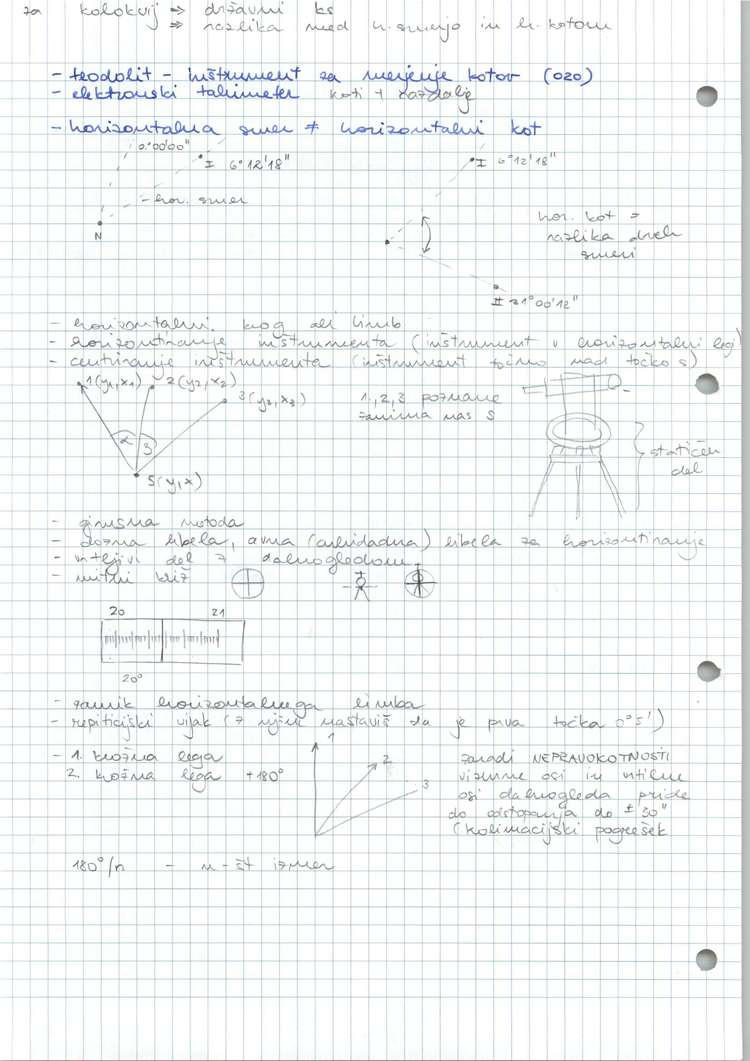 za kolokvij ⇒ državni ks
⇒ razlika med h. smerjo in h. kotom
- teodolit - inštrument za merjenje kotov (020)
- elektronski tahimeter koti + razdalje
- horizontalna smer ≠ horizontalni kot
0°00'00"
I 6°12'18"
- hor. smer
N
I 6°12'18"
hor. kot =
razlika dveh
smeri
II 21°00'12"
- horizontalni krog ali limb
- horizontiranje inštrumenta (inštrument v horizontalni legi)
- centriranje inštrumenta (inštrument točno nad točko s)
1(y1,x1) 2(y2,x2)
3(y3,x3)
1, 2, 3 poznane
zanima nas S
α β
S(y,x)
statičen
del
- girusna metoda
- dozna libela, alhidadna) libela za horizontiranje
- vrtljivi del z daljnogledom
- nitni križ
20 21
20°
- zamik horizontalnega limba
- repiticijski vijak (z njim nastaviš da je prva točka 0°5')
- 1. krožna lega
2. krožna lega +180°
1
2
3
zaradi NEPRAVOKOTNOSTI
vizurne osi in vrtilne
osi daljnogleda pride
do odstopanja do ± 30"
(kolimacijski pogrešek
180°/n - n - št izmer